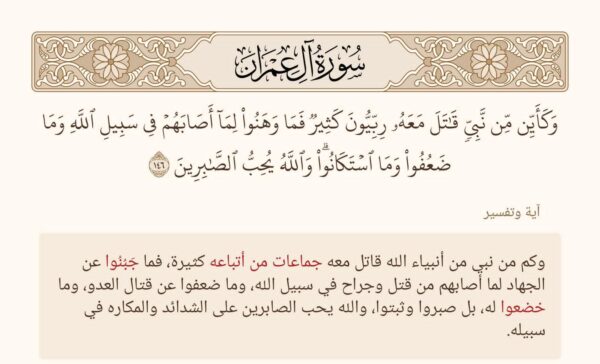 سُورَةُ آلِ عِمْرَان
وَكَأَيِّن مِّن نَّبِيٍّ قَٰتَلَ مَعَهُۥ رِبِّيُّونَ كَثِيرٌ فَمَا وَهَنُوا۟ لِمَآ أَصَابَهُمْ فِى سَبِيلِ ٱللَّهِ وَمَا
ضَعُفُوا۟ وَمَا ٱسْتَكَانُوا۟ ۗ وَٱللَّهُ يُحِبُّ ٱلصَّٰبِرِينَ ١٤٦
آية وتفسير
وكم من نبي من أنبياء الله قاتل معه جماعات من أتباعه كثيرة، فما جَبَنُوا عن
الجهاد لما أصابهم من قتل وجراح في سبيل الله، وما ضعفوا عن قتال العدو، وما
خضعوا له، بل صبروا وثبتوا، والله يحب الصابرين على الشدائد والمكاره في
سبيله.